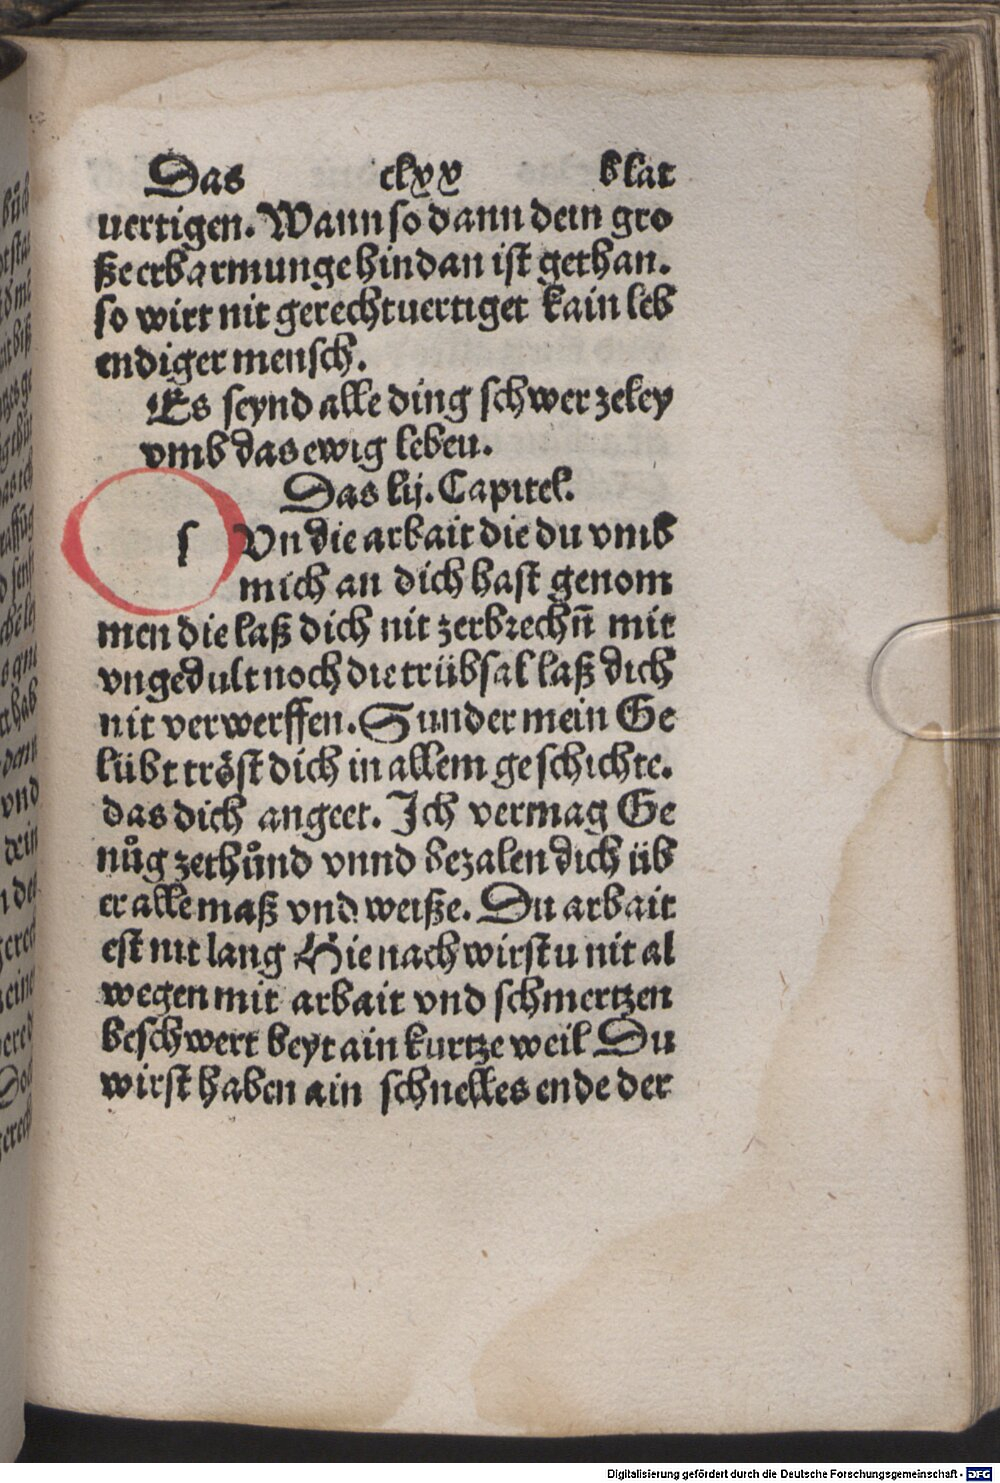 Das clxx blat
uertigen. Wann so dann dein gro
ße erbarmunge hindan ist gethan.
so wirt nit gerechtuertiget kain leb
endiger mensch.
Es seynd alle ding schwer zeley
vmb das ewig leben.
Das lij. Capitel.
s Vn die arbait die du vmb
mich an dich hast genom
men die laß dich nit zerbrechn̄ mit
vngedult noch die trübsal laß dich
nit verwerffen. Sunder mein Ge
lübt tröst dich in allem geschichte.
das dich angeet. Ich vermag Ge
nůg zethůnd vnnd bezalen dich üb
er alle maß vnd weiße. Du arbait
est nit lang Hie nach wirstu nit al
wegen mit arbait vnd schmertzen
beschwert beyt ain kurtze weil Du
wirst haben ain schnelles ende der
Digitalisierung gefördert durch die Deutsche Forschungsgemeinschaft - DFG